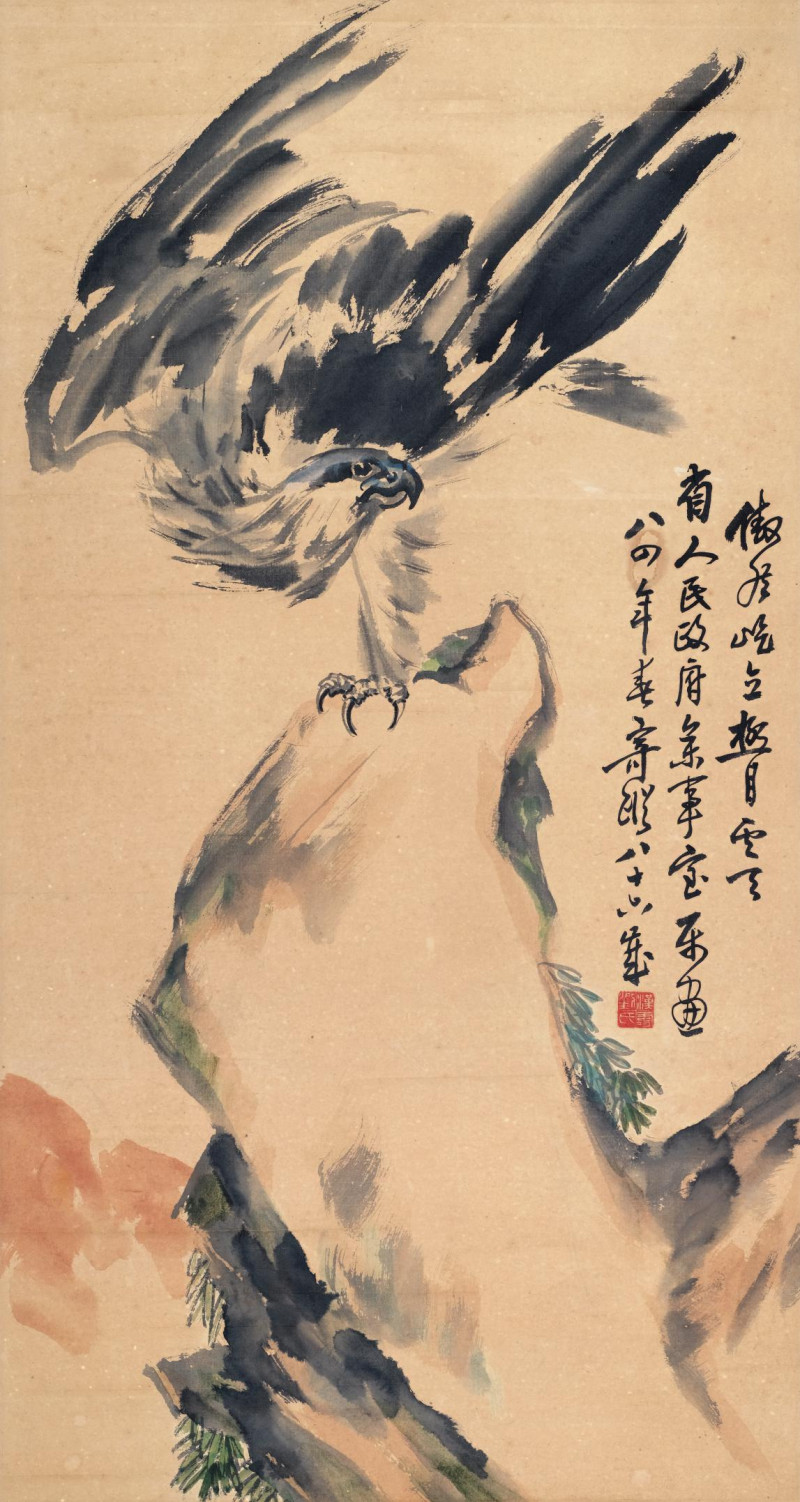 傲然屹立極目云天
省人民政府参事室属画
八四年春寄蹤八十六歲